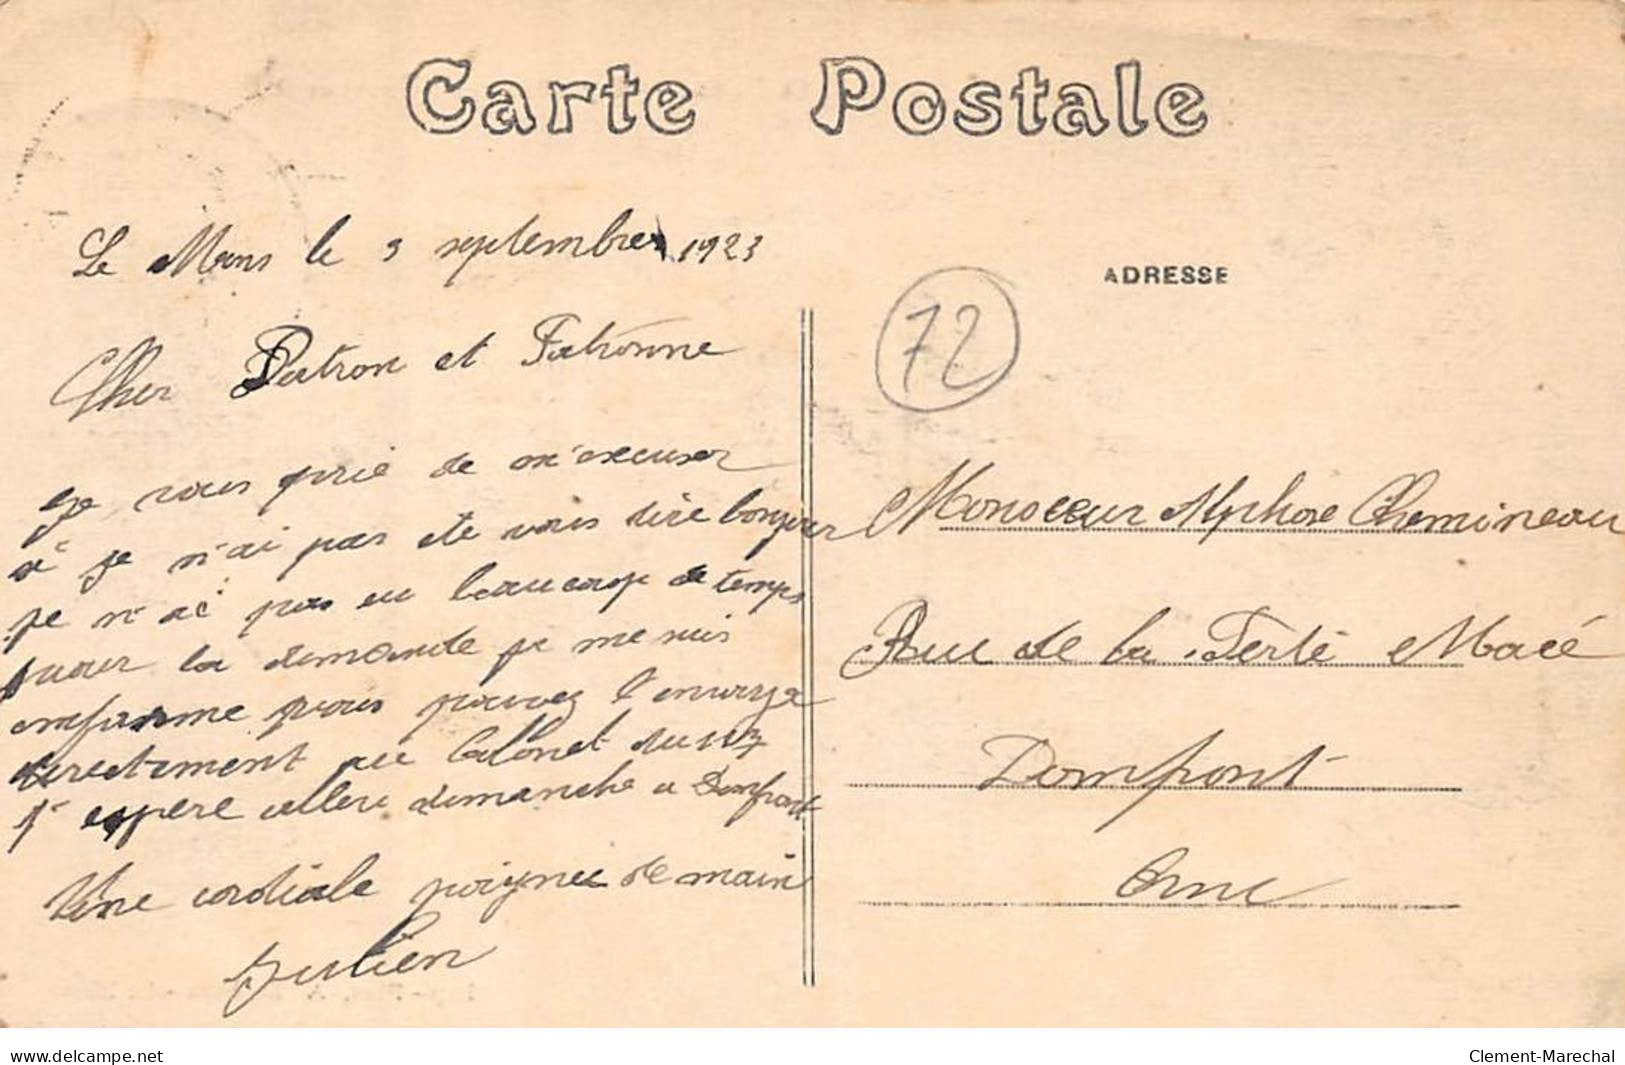 Carte Postale
Le Mans le 3 septembre 1923
ADRESSE
72
Cher Patron et Patronne
Je vous prie de m'excuser
si je n'ai pas ete vous dire bonjour
je n'ai pas eu beaucoup de temps
pour la demande je me suis
informé vous pouvez l'envoyé
directement au Colonel du 117
J'espere allere dimanche a Domfront
Une cordiale poignee de main
Julien
Monsieur Alphose Chemineau
Rue de la Ferté Macé
Domfront
Orne
delcampe.net
Clement-Marechal